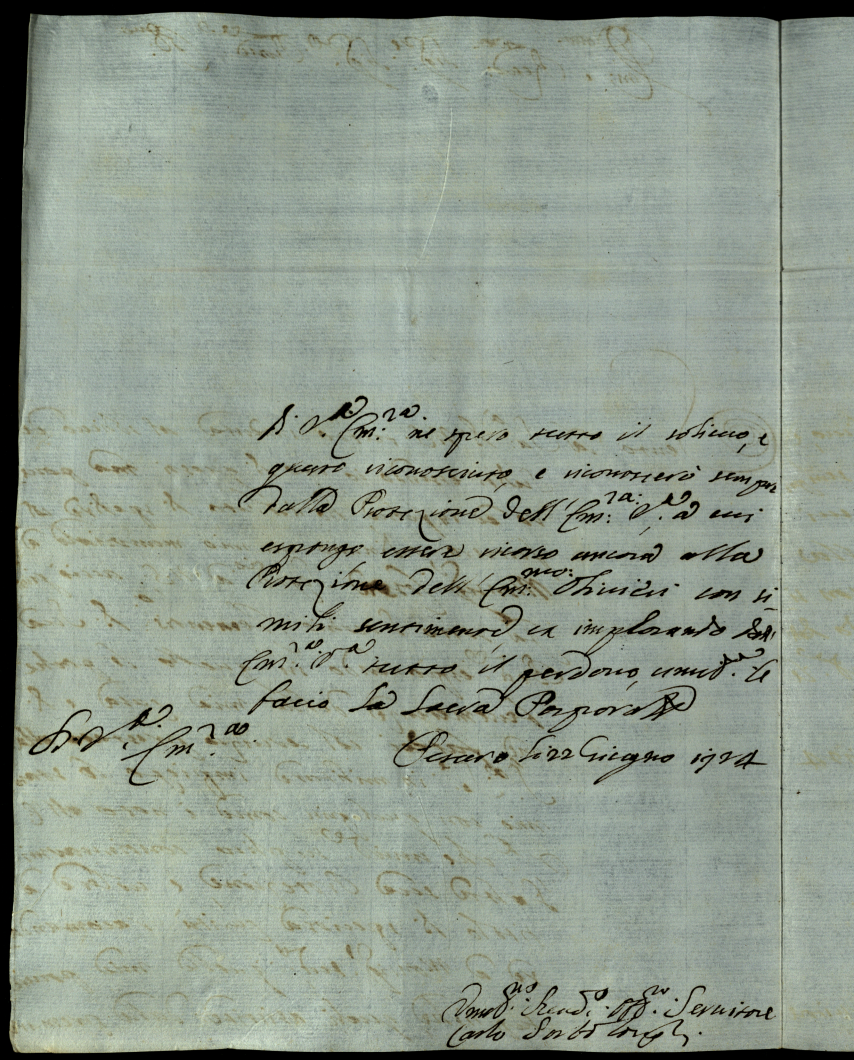 di V.ª Em.ᶻᵃ ne spero tutto il solieuo, e
questo riconosciuto, e riconoscerò sempre
dalla Protezione dell' Em.ᶻᵃ V.ª, a cui
espongo essere ricorso ancora alla
Protezione dell' Em.ᵐᵒ Oliuieri con si-
mili sentimenti, ed implorando dall'
Em.ᶻᵃ V.ª tutto il perdono, umil.ᵗᵉ le
bacio la Sacra Porpora
Di V.ª Em.ᶻᵃ
Pesaro li 22 Giugno 1724
Umil.ᵐᵒ Deuot.ᵒ Obb.ᵐᵒ Seruitore
Carlo